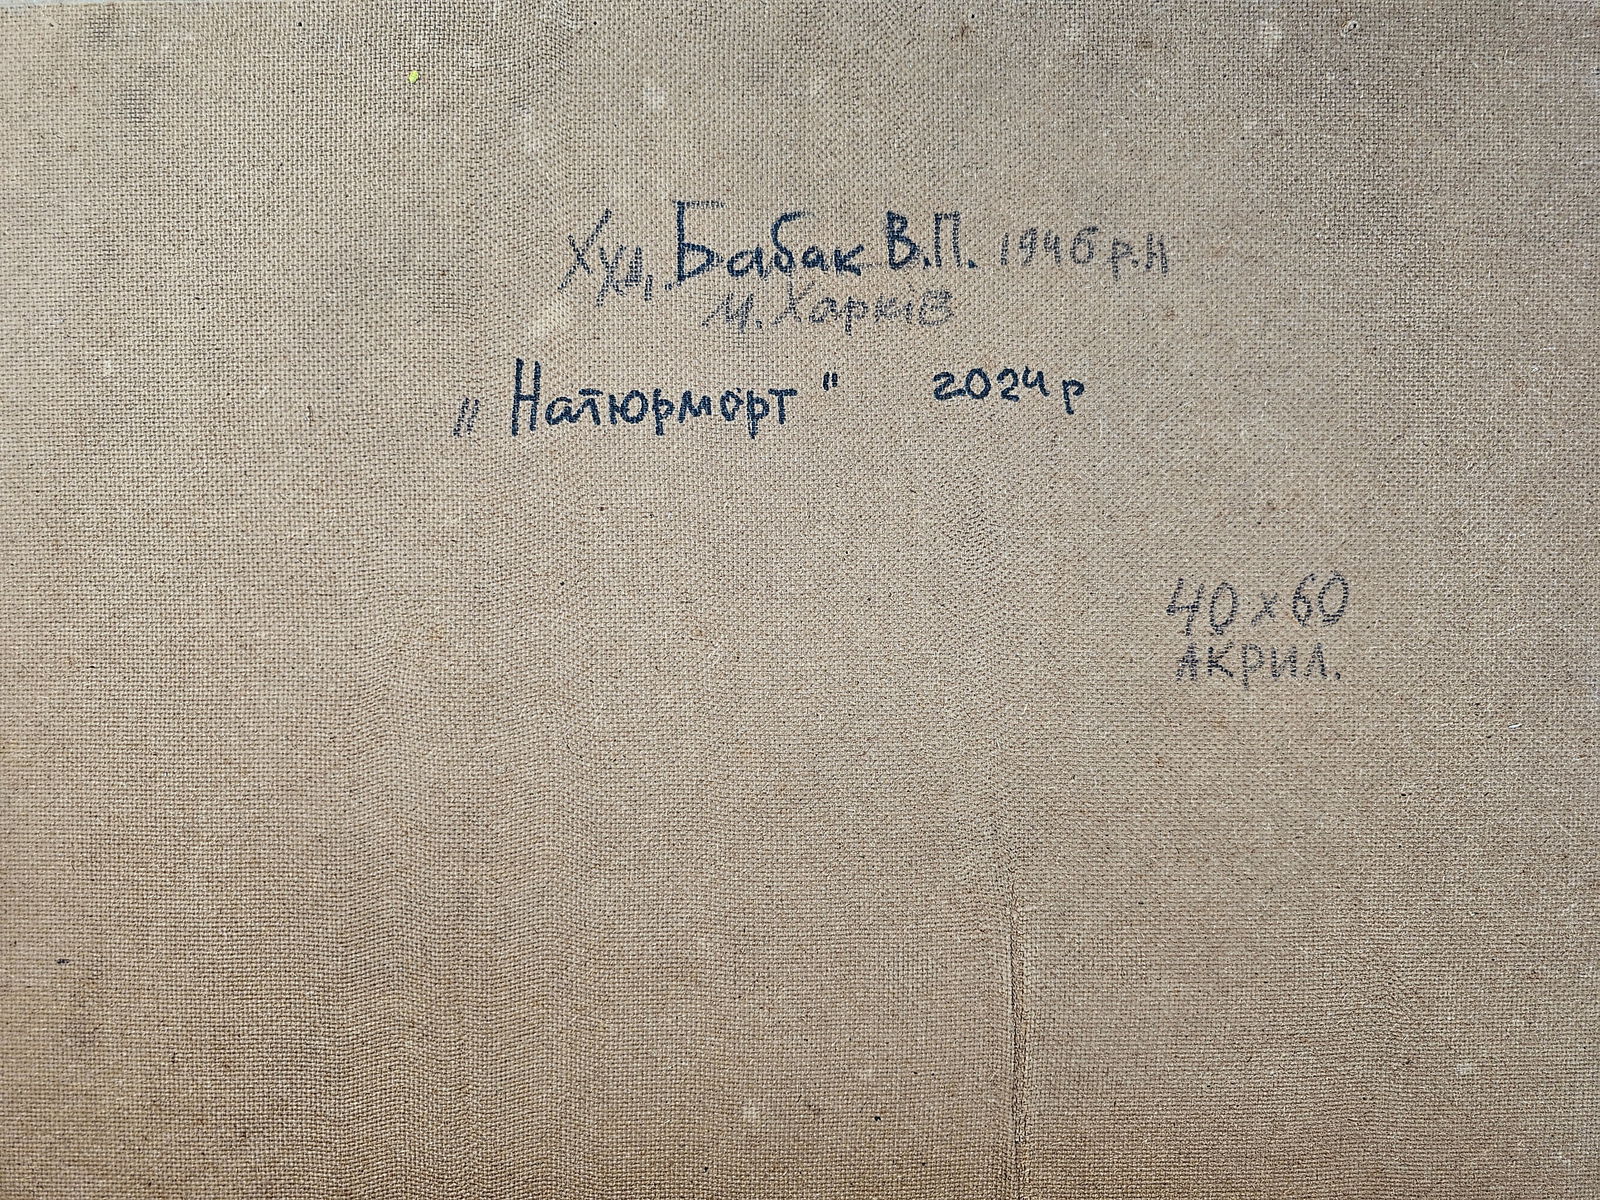 Худ. Бабак В.П. 1946 р.н
м. Харків
"Натюрморт" 2024р
40х60
акрил.